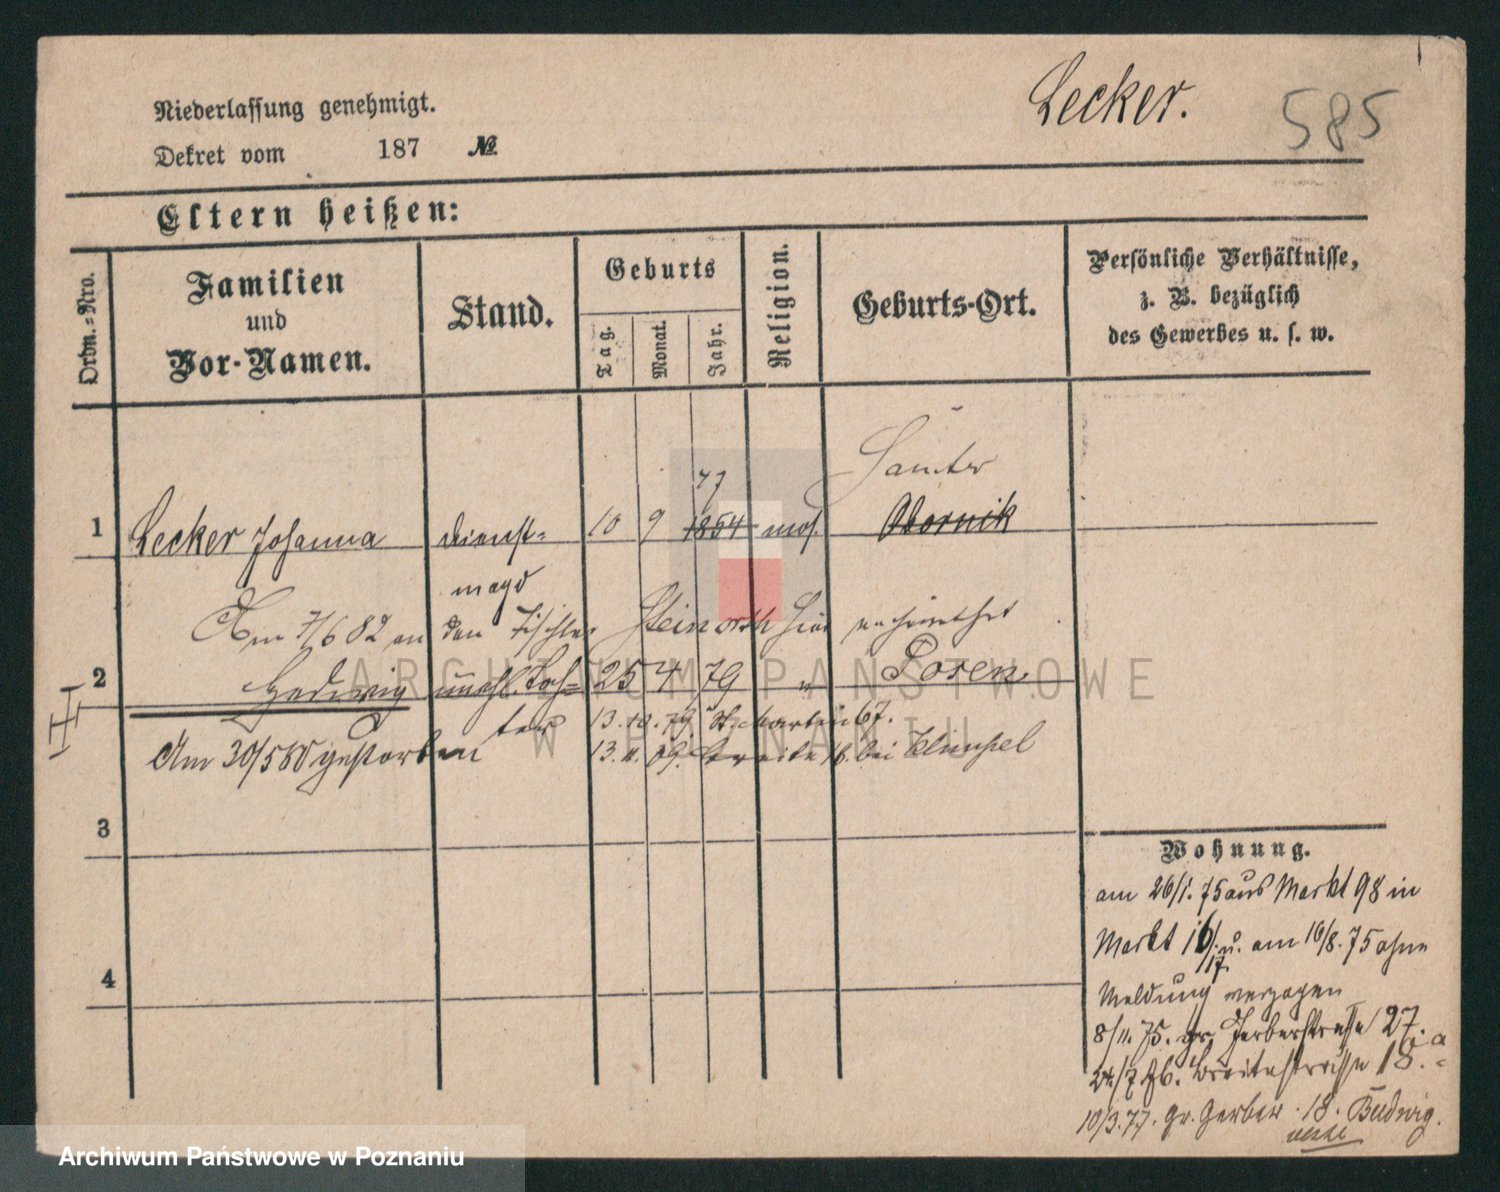 Lecker.
585
Niederlassung genehmigt.
Dekret vom 187 №
Eltern heißen:
Ordn.-Nro.
Familien und Vor-Namen.
Stand.
Geburts
Tag.
Monat.
Jahr.
Religion.
Geburts-Ort.
Persönliche Verhältnisse,
z. B. bezüglich
des Gewerbes u. s. w.
77
Samter
1 Lecker Johanna Dienst= 10 9 1854 mos. Obornik
magd
Am 7/6 82 an den Tischler hier verheirathet
2 Hedwig unehl. Toch= 25 4 79 " Posen
ter 13.10.79 St. Martin 67.
Am 30/5 80 gestorben 13.11.09. Breite 16. bei
3
4
Wohnung.
am 26/1. 75 aus Markt 98 in
Markt 16/17 u. am 16/8. 75 ohne
Meldung verzogen
8/11. 75. gr. Gerberstrasse 27.
24/7 76. Breitestrasse 18.a
10/3.77. Gr. Gerber. 18. Budwig.
ARCHIWUM PAŃSTWOWE
W POZNANIU
Archiwum Państwowe w Poznaniu